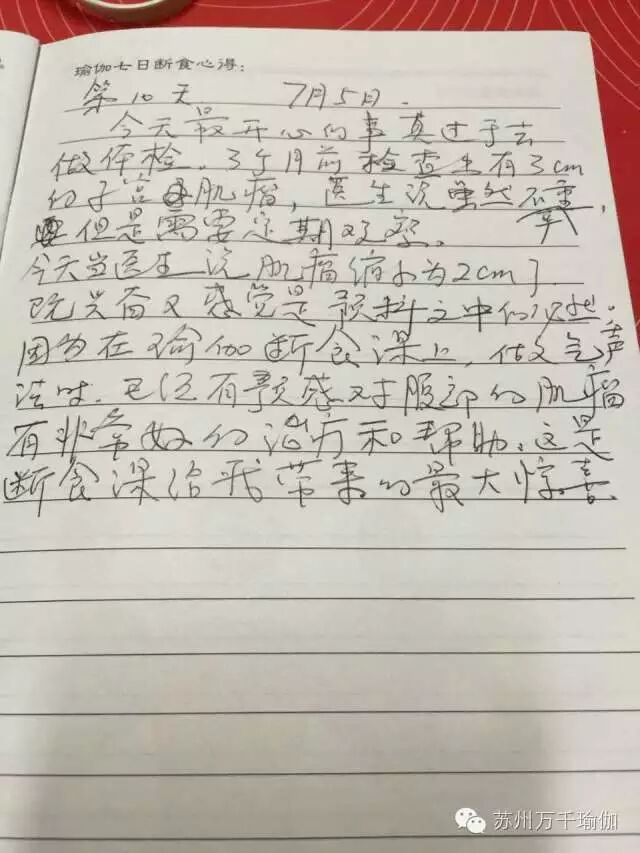 瑜伽七日断食心得:
第10天 7月5日.
今天最开心的事莫过于去
做体检,3个月前检查出有3cm
的子宫肌瘤,医生说虽然不严重,
但是需要定期观察。
今天当医生说肌瘤缩小为2cm了.
既兴奋又感觉是预料之中的
因为在瑜伽断食课上,做气声
法时.已经有预感对腹部的肌瘤
有非常好的治疗和帮助.这是
断食课给我带来的最大惊喜.
苏州万千瑜伽